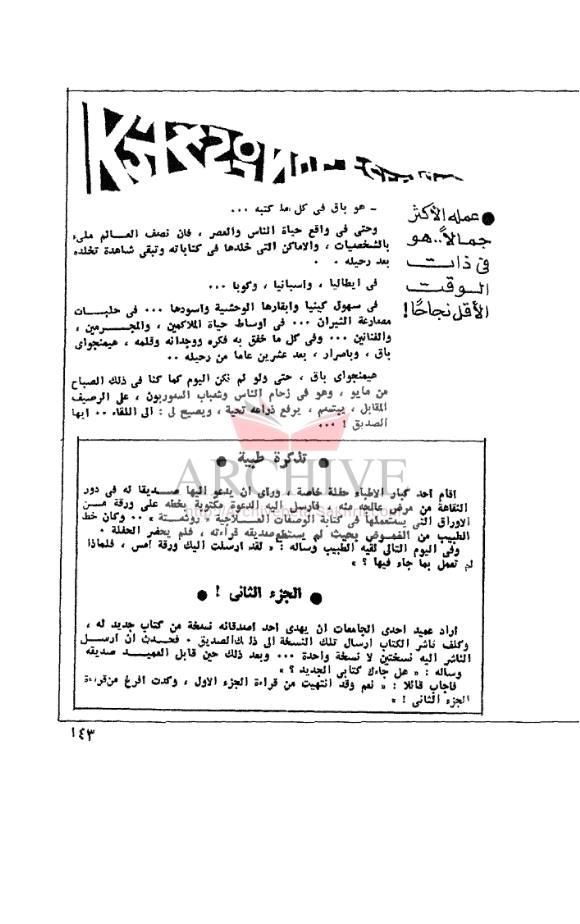 ● عمله الأكثر
جمالاً.. هو
فى ذات
الوقت
الأقل نجاحًا!
ـ هو باق فى كل ما كتبه ...
وحتى فى واقع حياة الناس والعصر ، فان نصف العالم ملىء
بالشخصيات ، والاماكن التى خلدها فى كتاباته وتبقى شاهدة تخلده
بعد رحيله . .
فى ايطاليا ، واسبانيا ، وكوبا ...
فى سهول كينيا وابقارها الوحشية واسودها ... فى حلبات
مصارعة الثيران ... فى اوساط حياة الملاكمين ، والمجرمين ،
والفنانين ... وفى كل ما خفق به فكره ووجدانه وقلمه ، هيمنجواى
باق ، وباصرار ، بعد عشرين عاما من رحيله ..
هيمنجواى باق ، حتى ولو لم نكن اليوم كما كنا فى ذلك الصباح
من مايو ، وهو فى زحام الناس وشباب السوربون ، على الرصيف
المقابل ، يبتسم ، يرفع ذراعه تحية ، ويصيح لى : الى اللقاء .. ايها
الصديق ! ...
● تذكرة طبية ●
ARCHIVE
اقام احد كبار الاطباء حفلة خاصة ، وراى ان يدعو اليها صديقا له فى دور
النقاهة من مرض عالجه منه . فارسل اليه الدعوة مكتوبة بخطه على ورقة من
الاوراق التى يستعملها فى كتابة الوصفات العلاجية « روشتة » .. وكان خط
الطبيب من الغموض بحيث لم يستطع صديقه قراءته ، فلم يحضر الحفلة .
وفى اليوم التالى لقيه الطبيب وساله : « لقد ارسلت اليك ورقة امس ، فلماذا
لم تعمل بما جاء فيها ؟ »
● الجزء الثانى ! ●
اراد عميد احدى الجامعات ان يهدى احد اصدقائه نسخة من كتاب جديد له ،
وكلف ناشر الكتاب ارسال تلك النسخة الى ذلك الصديق . فحدث ان ارسل
الناشر اليه نسختين لا نسخة واحدة ... وبعد ذلك حين قابل العميد صديقه
وساله : « هل جاءك كتابى الجديد ؟ »
فاجاب قائلا : « نعم وقد انتهيت من قراءة الجزء الاول ، وكدت افرغ من قراءة
الجزء الثانى ! »
١٤٣